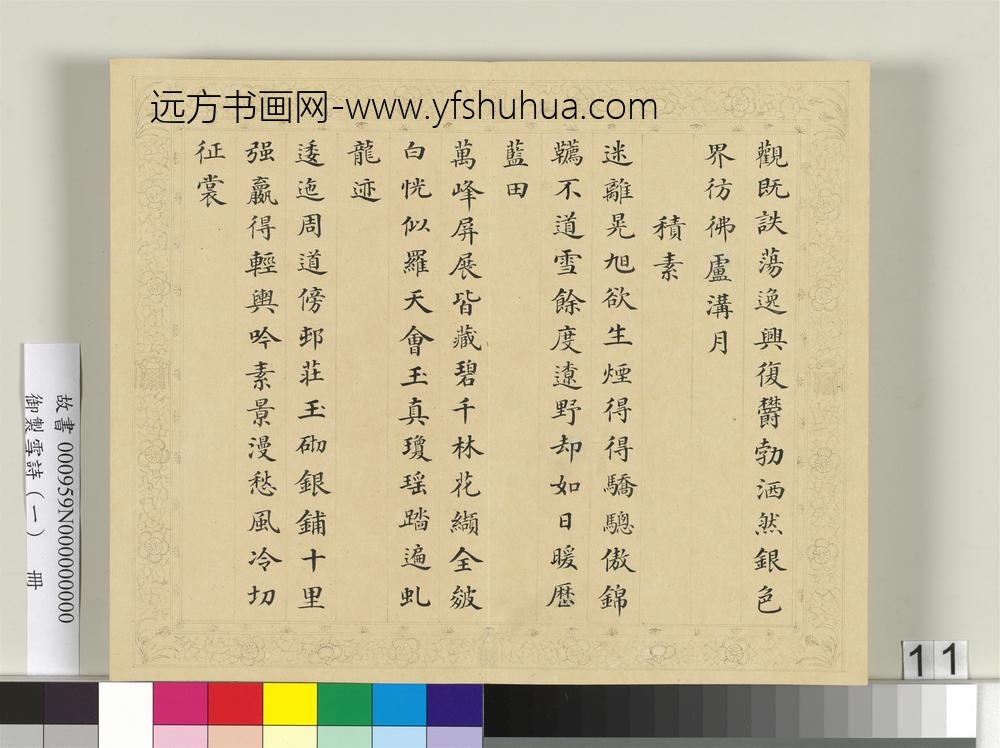 远方书画网-www.yfshuhua.com
觀既詄蕩逸興復欝勃洒然銀色
界彷彿盧溝月
積素
迷離晃旭欲生煙得得驕驄傲錦
韉不道雪餘度遼野却如日暖
藍田
萬峰屏展皆藏碧千林花纈全皴
白恍似羅天會玉真瓊瑶踏遍虬
龍迹
逶迤周道傍邨莊玉砌銀鋪十里
强贏得輕輿吟素景漫愁風冷切
征裳
故書 000959N000000000
御製雪詩(一) 冊
11